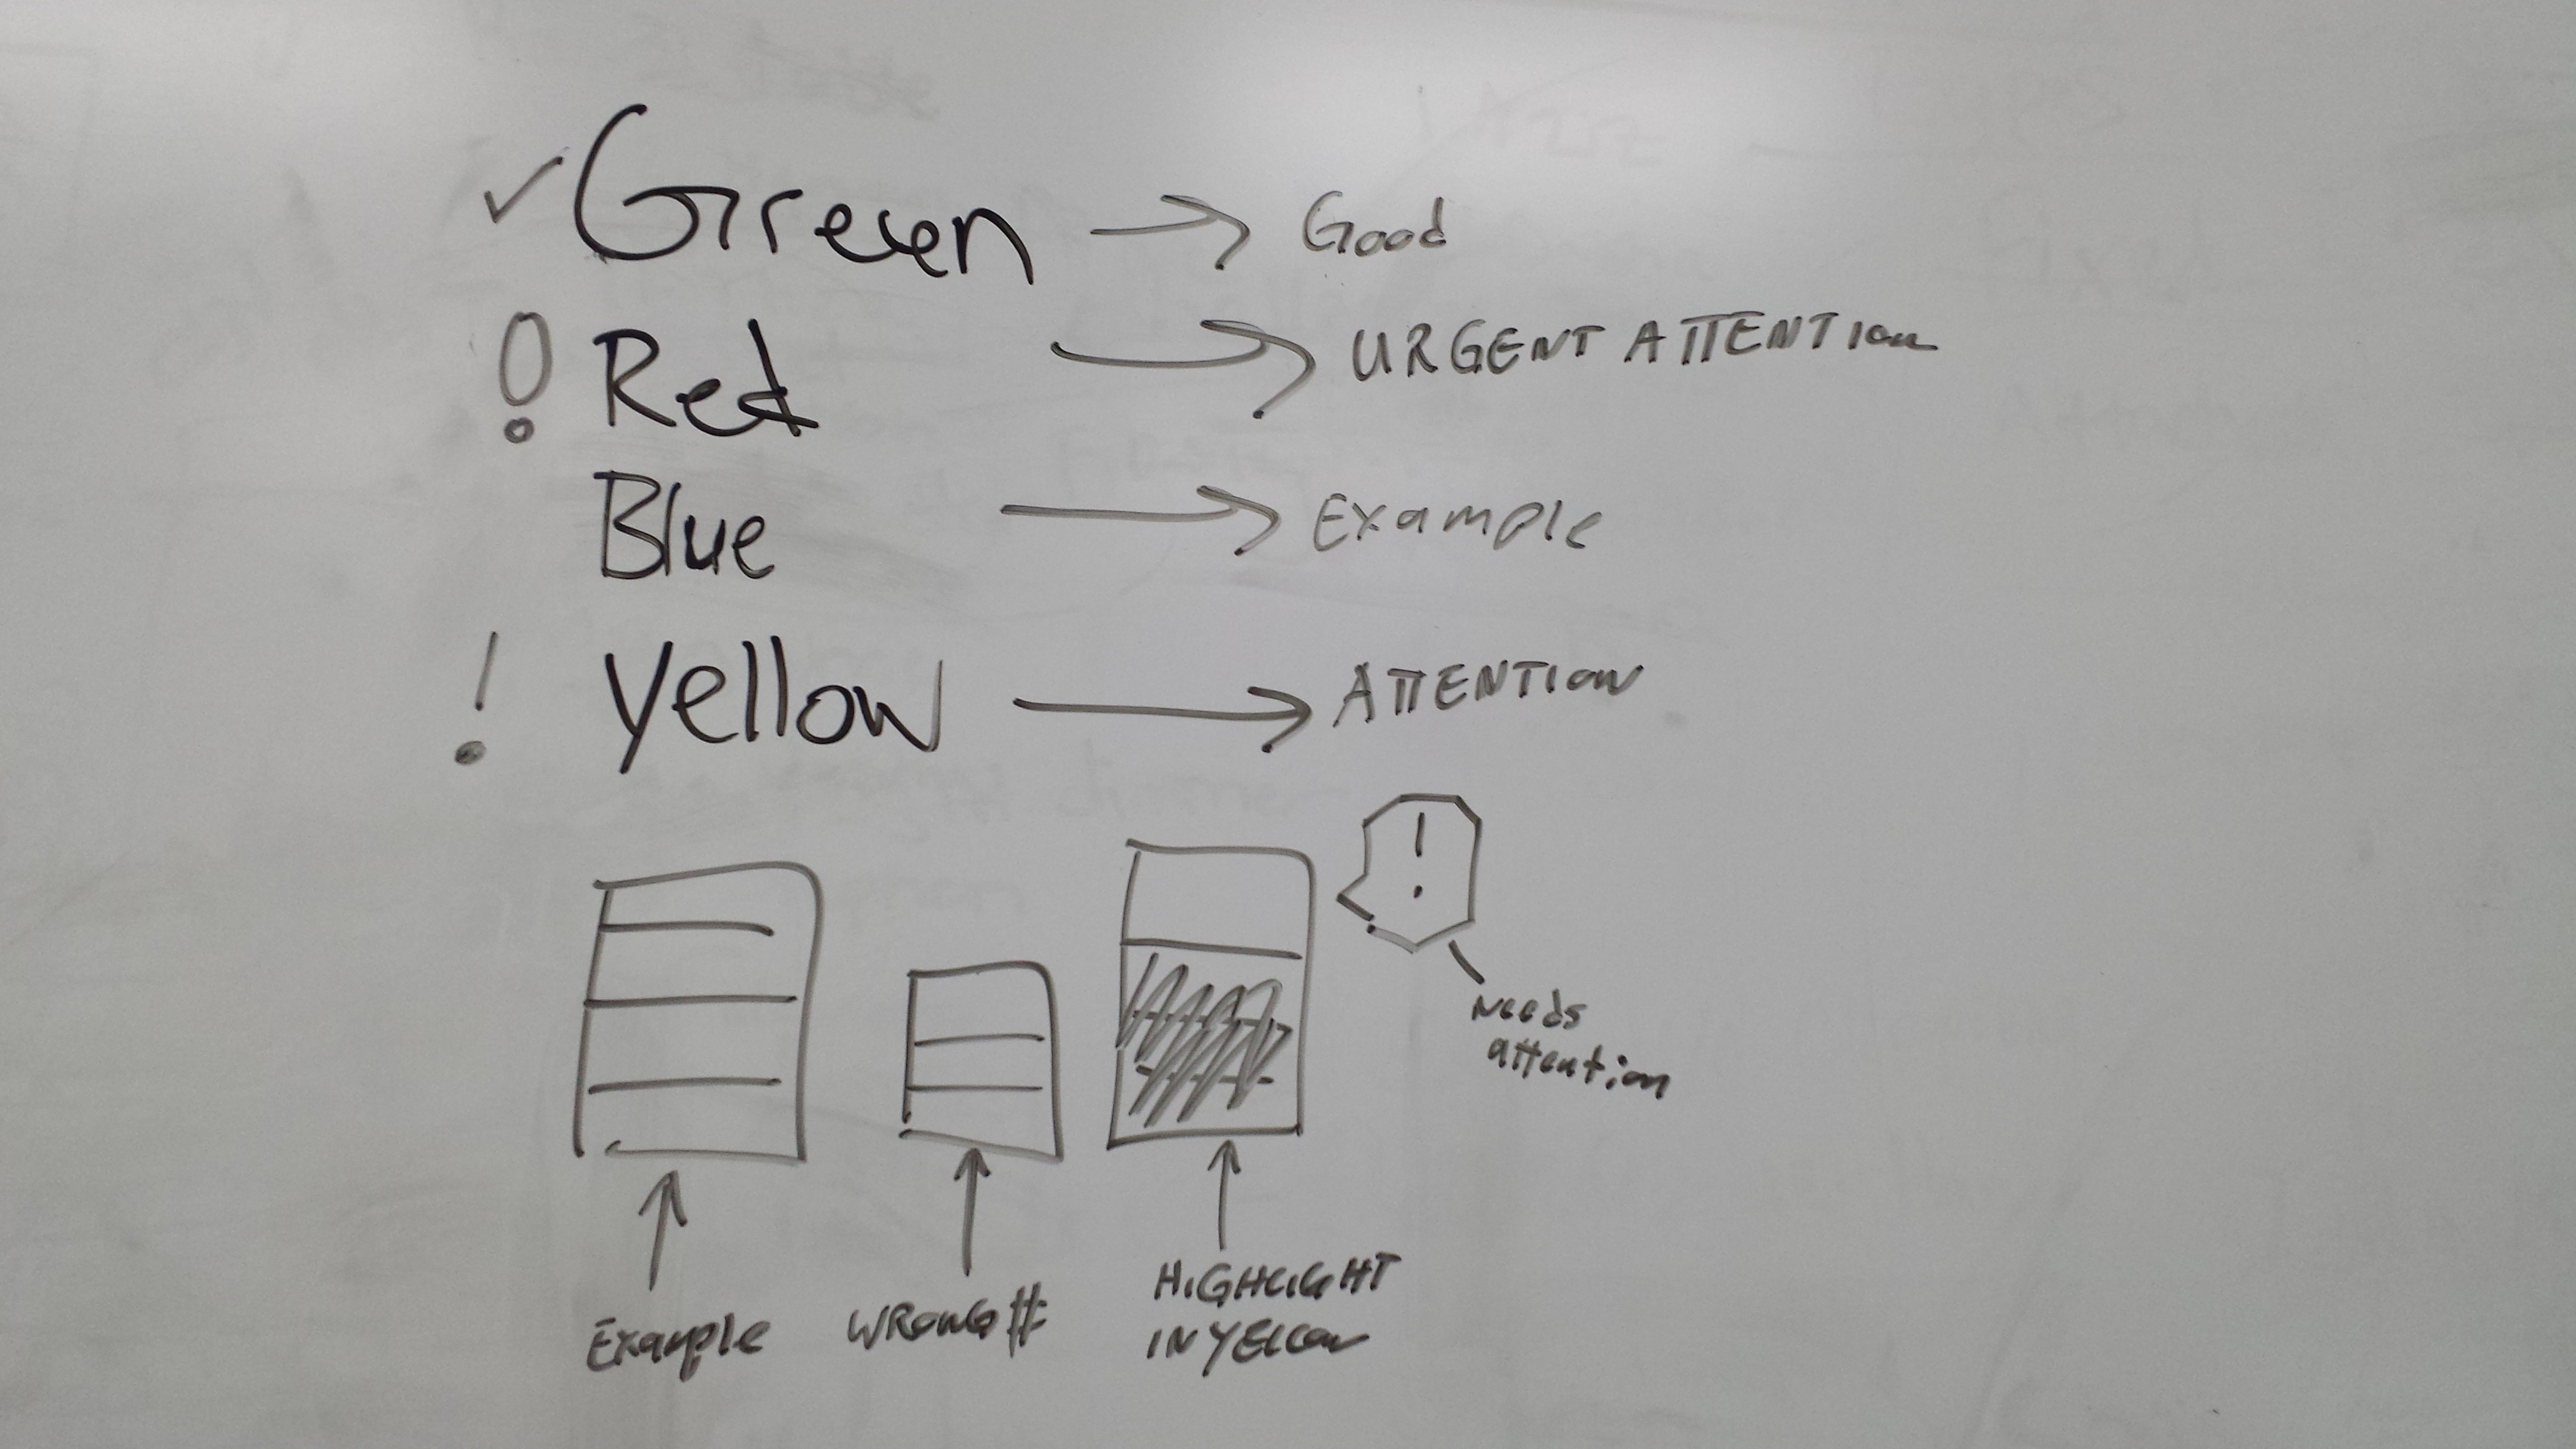 ✓ Green → Good
! Red → URGENT ATTENTION
Blue → Example
! Yellow → ATTENTION
!
Needs
attention
Example
WRONG #
HIGHLIGHT
IN YELLOW